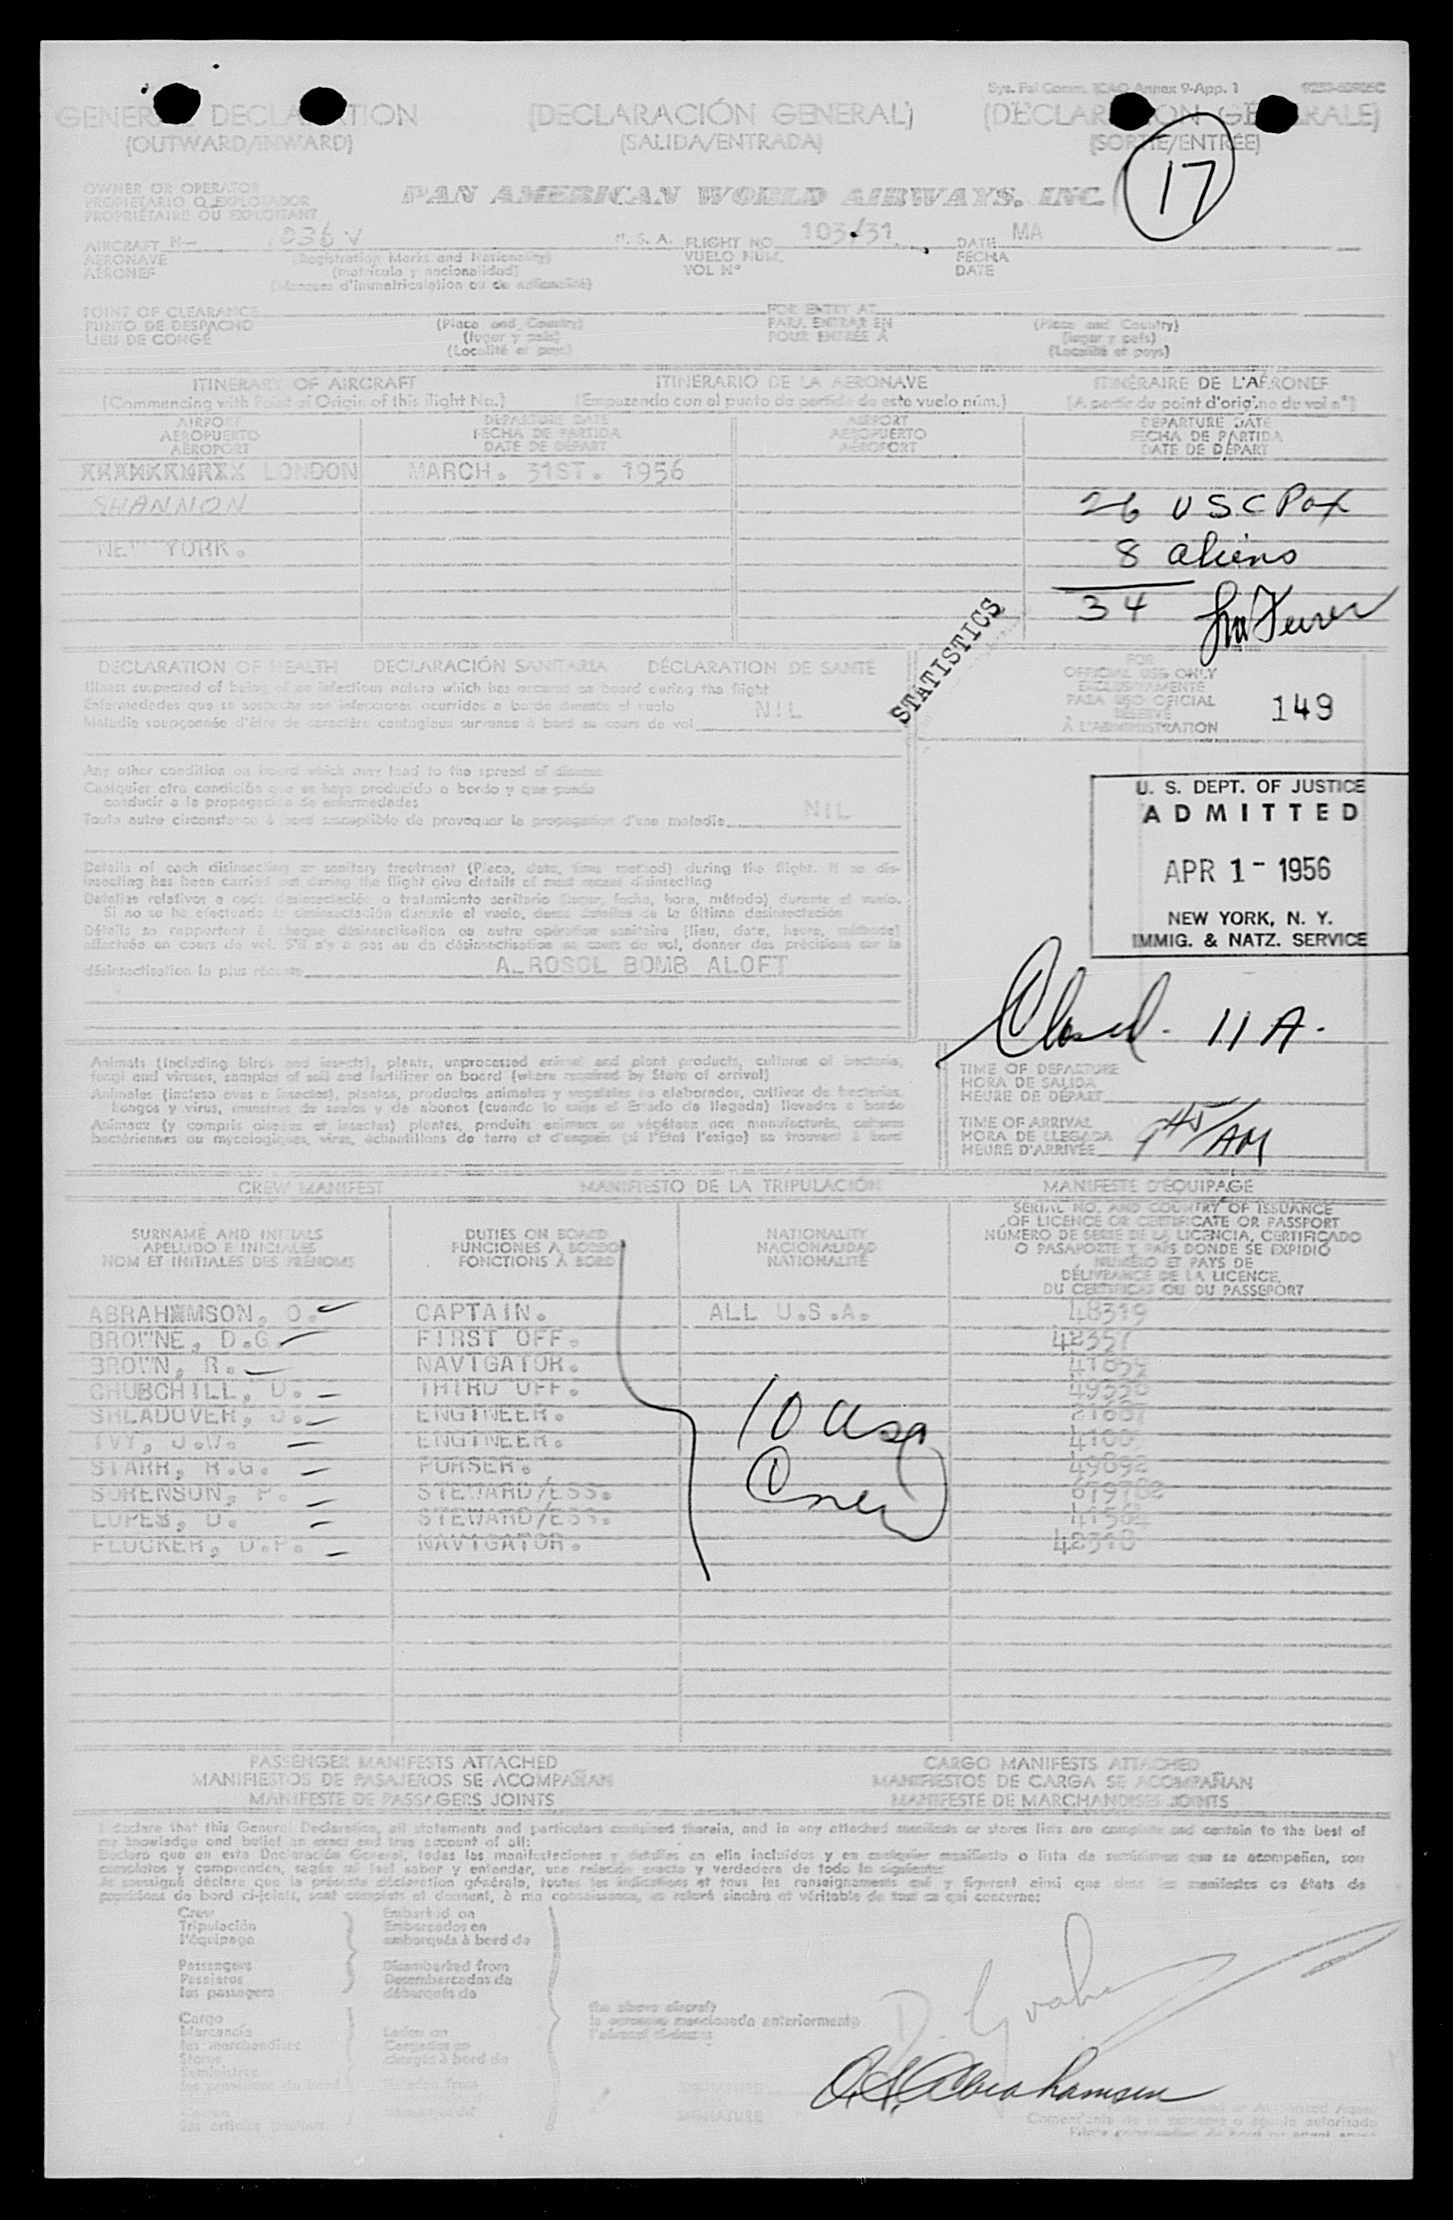 Annex 9-App. 1
GENERAL DECLARATION (DECLARACIÓN GENERAL) (DECLARATION GÉNÉRALE)
(OUTWARD/INWARD) (SALIDA/ENTRADA) (SORTIE/ENTRÉE)
17
OWNER OR OPERATOR
PROPIETARIO O EXPLOTADOR
PROPRIÉTAIRE OU EXPLOITANT
PAN AMERICAN WORLD AIRWAYS, INC.
AIRCRAFT N- U. S. A. FLIGHT NO. 103/31 DATE MA
AERONAVE (Registration Marks and Nationality) VUELO NÚM. FECHA
AERONEF (matrícula y nacionalidad) VOL Nº DATE
(Marques d'immatriculation ou de nationalité)
POINT OF CLEARANCE FOR ENTRY AT
PUNTO DE DESPACHO (Place and Country) PARA ENTRAR EN (Place and Country)
LIEU DE CONGÉ (lugar y país) POUR ENTRÉE À (lugar y país)
(Localité et pays) (Localité et pays)
ITINERARY OF AIRCRAFT ITINERARIO DE LA AERONAVE ITINÉRAIRE DE L'AÉRONEF
(Commencing with Point of Origin of this flight No.) (Empezando con el punto de partida de este vuelo núm.) (A partir du point d'origine du vol nº)
AIRPORT DEPARTURE DATE AIRPORT DEPARTURE DATE
AEROPUERTO FECHA DE PARTIDA AEROPUERTO FECHA DE PARTIDA
AÉROPORT DATE DE DÉPART AÉROPORT DATE DE DÉPART
LONDON MARCH. 31ST. 1956
SHANNON 26 USC Pax
NEW YORK. 8 aliens
34
STATISTICS
DECLARATION OF HEALTH DECLARACIÓN SANITARIA DÉCLARATION DE SANTÉ
Illness suspected of being of an infectious nature which has occurred on board during the flight
Enfermedades que se sospeche son infecciosas ocurridas a bordo durante el vuelo
Maladie soupçonnée d'être de caractère contagieux survenue à bord au cours de vol NIL
FOR
OFFICIAL USE ONLY
EXCLUSIVAMENTE
PARA USO OFICIAL
RÉSERVÉ
À L'ADMINISTRATION
149
Any other condition on board which may lead to the spread of disease
Cualquier otra condición que se haya producido a bordo y que pueda
conducir a la propagación de enfermedades
Toute autre circonstance à bord susceptible de provoquer la propagation d'une maladie NIL
U. S. DEPT. OF JUSTICE
ADMITTED
APR 1 - 1956
NEW YORK, N. Y.
IMMIG. & NATZ. SERVICE
Details of each disinsecting or sanitary treatment (Place, date, time, method) during the flight. If no dis-
insecting has been carried out during the flight give details of most recent disinsecting
Detalles relativos a cada desinsectación o tratamiento sanitario (lugar, fecha, hora, método) durante el vuelo.
Si no se ha efectuado la desinsectación durante el vuelo, dense detalles de la última desinsectación
Détails se rapportant à chaque désinsectisation ou autre opération sanitaire (lieu, date, heure, méthode)
effectuée en cours de vol. S'il n'y a pas eu de désinsectisation au cours de vol, donner des précisions sur la
désinsectisation la plus récente AEROSOL BOMB ALOFT
Closed - 11 A.
Animals (including birds and insects), plants, unprocessed animal and plant products, cultures of bacteria,
fungi and viruses, samples of soil and fertilizer on board (where required by State of arrival)
Animales (incluso aves e insectos), plantas, productos animales y vegetales no elaborados, cultivos de bacterias,
hongos y virus, muestras de suelos y de abonos (cuando lo exija el Estado de llegada) llevados a bordo
Animaux (y compris oiseaux et insectes) plantes, produits animaux ou végétaux non manufacturés, cultures
bactériennes ou mycologiques, virus, échantillons de terre et d'engrais (si l'État l'exige) se trouvant à bord
TIME OF DEPARTURE
HORA DE SALIDA
HEURE DE DÉPART
TIME OF ARRIVAL
HORA DE LLEGADA
HEURE D'ARRIVÉE 9 45/AM
CREW MANIFEST MANIFIESTO DE LA TRIPULACIÓN MANIFESTE D'ÉQUIPAGE
SURNAME AND INITIALS
APELLIDO E INICIALES
NOM ET INITIALES DES PRÉNOMS
DUTIES ON BOARD
FUNCIONES A BORDO
FONCTIONS À BORD
NATIONALITY
NACIONALIDAD
NATIONALITÉ
SERIAL NO. AND COUNTRY OF ISSUANCE
OF LICENCE OR CERTIFICATE OR PASSPORT
NÚMERO DE SERIE DE LA LICENCIA, CERTIFICADO
O PASAPORTE Y PAÍS DONDE SE EXPIDIÓ
NUMÉRO ET PAYS DE
DÉLIVRANCE DE LA LICENCE,
DU CERTIFICAT OU DU PASSEPORT
ABRAHAMSON, O. CAPTAIN. ALL U.S.A. 48319
BROWNE, D.G. FIRST OFF. 42357
BROWN, R. NAVIGATOR.
CHURCHILL, D. THIRD OFF.
SHLADOVER, J. ENGINEER.
IVY, J.W. ENGINEER.
STARR, R.G. PURSER. 49092
SORENSON, P. STEWARD/ESS. 679782
LOPES, D. STEWARD/ESS.
FLOCKER, D.P. NAVIGATOR. 42318
10 USA
Crew
PASSENGER MANIFESTS ATTACHED CARGO MANIFESTS ATTACHED
MANIFIESTOS DE PASAJEROS SE ACOMPAÑAN MANIFIESTOS DE CARGA SE ACOMPAÑAN
MANIFESTE DE PASSAGERS JOINTS MANIFESTE DE MARCHANDISES JOINTS
I declare that this General Declaration, all statements and particulars contained therein, and in any attached manifests or stores lists are complete and contain to the best of
my knowledge and belief an exact and true account of all:
Declaro que en esta Declaración General, todas las manifestaciones y detalles en ella incluidos y en cualquier manifiesto o lista de suministros que se acompañen, son
completos y comprenden, según mi leal saber y entender, una relación exacta y verdadera de todo lo siguiente:
Je soussigné déclare que la présente déclaration générale, toutes les indications et tous les renseignements qui y figurent ainsi que dans les manifestes ou états de
provisions de bord ci-joints, sont complets et donnent, à ma connaissance, un relevé sincère et véritable de tout ce qui concerne:
Crew Embarked on
Tripulación Embarcados en
l'équipage embarqués à bord de
Passengers Disembarked from
Pasajeros Desembarcados de
les passagers débarqués de
Cargo the above aircraft
Mercancía Laden on la aeronave mencionada anteriormente
les marchandises Cargados en
Stores chargés à bord de
Suministros
D. Graham
O. S. Abrahamson
SIGNATURE